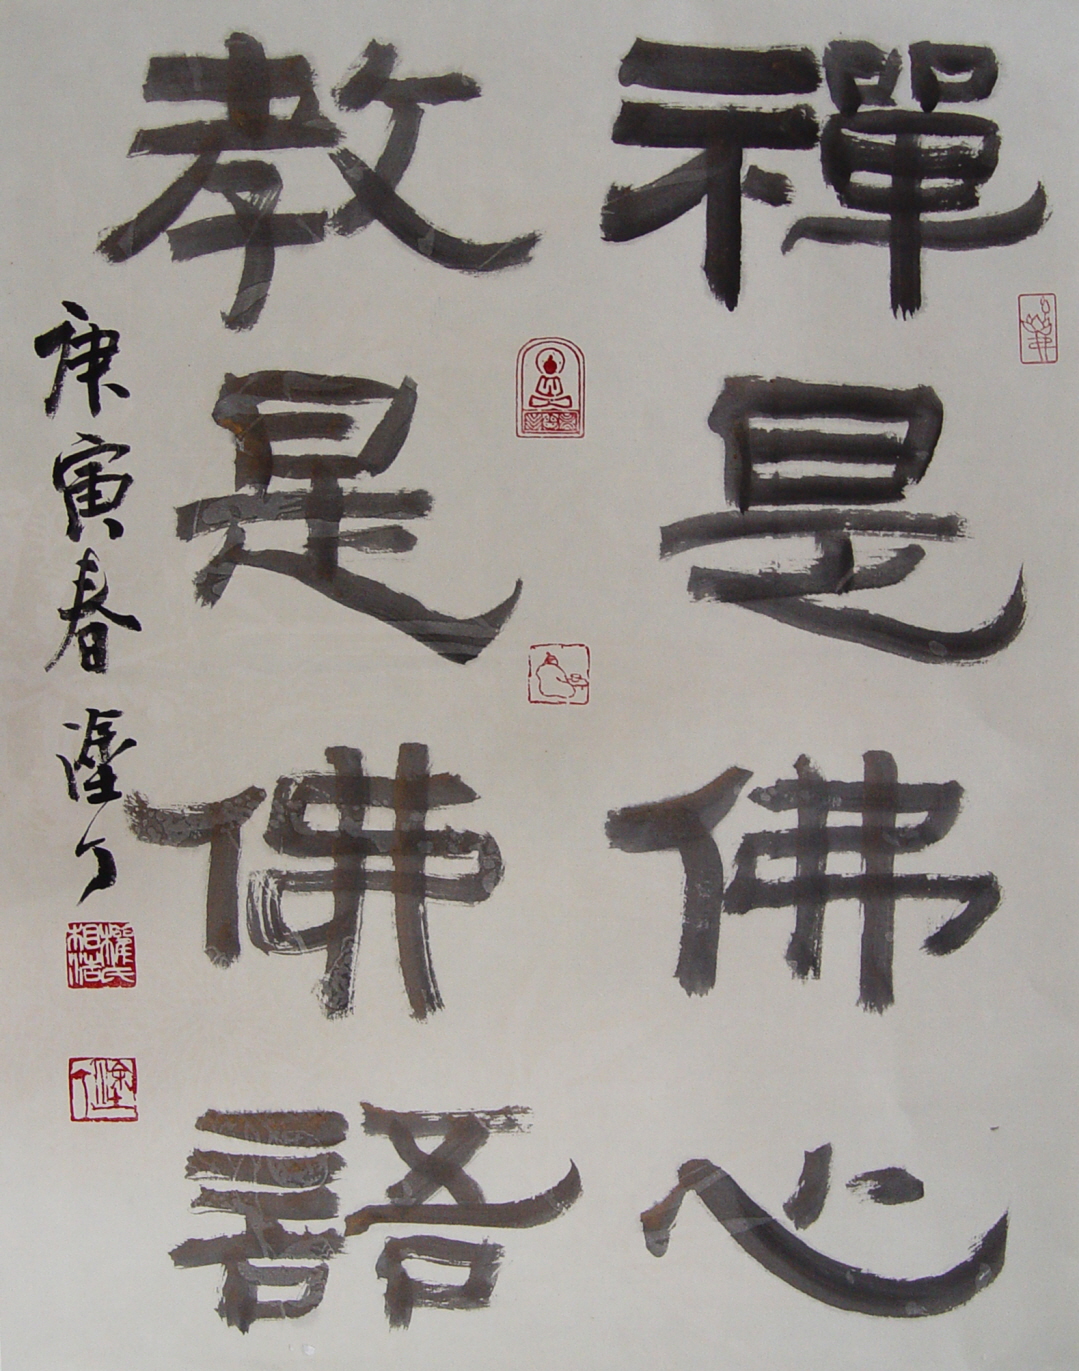 禪是佛心
教是佛語
庚寅春塗了